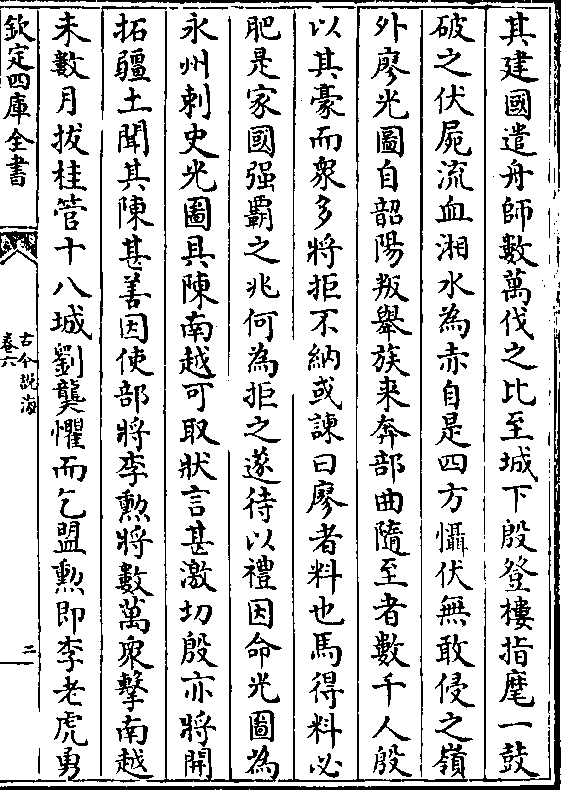 其建國遣舟師數萬伐之比至城下殷登樓指麾一鼓
破之伏屍流血湘水為赤自是四方懾伏無敢侵之嶺
外廖光圖自韶陽叛舉族来奔部曲隨至者數千人殷
以其豪而衆多將拒不納或諫曰廖者料也馬得料必
肥是家國强霸之兆何為拒之遂待以禮因命光圖為
永州刺史光圖具陳南越可取狀言甚激切殷亦將開
拓疆土聞其陳甚善因使部將李勲將數萬衆擊南越
未數月拔桂管十八城劉龑懼而乞盟勲即李老虎勇
欽定四庫全書
古今說海
卷六
二